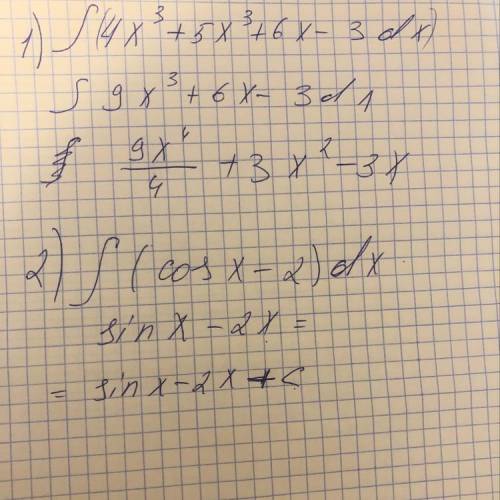 1) ∫(4x³+5x³+6x-3dx)
∫ 9x³+6x-3d1
9x⁴/4 +3x²-3x
2) ∫(cos x-2)dx
sin x-2x=
= sin x-2x+c